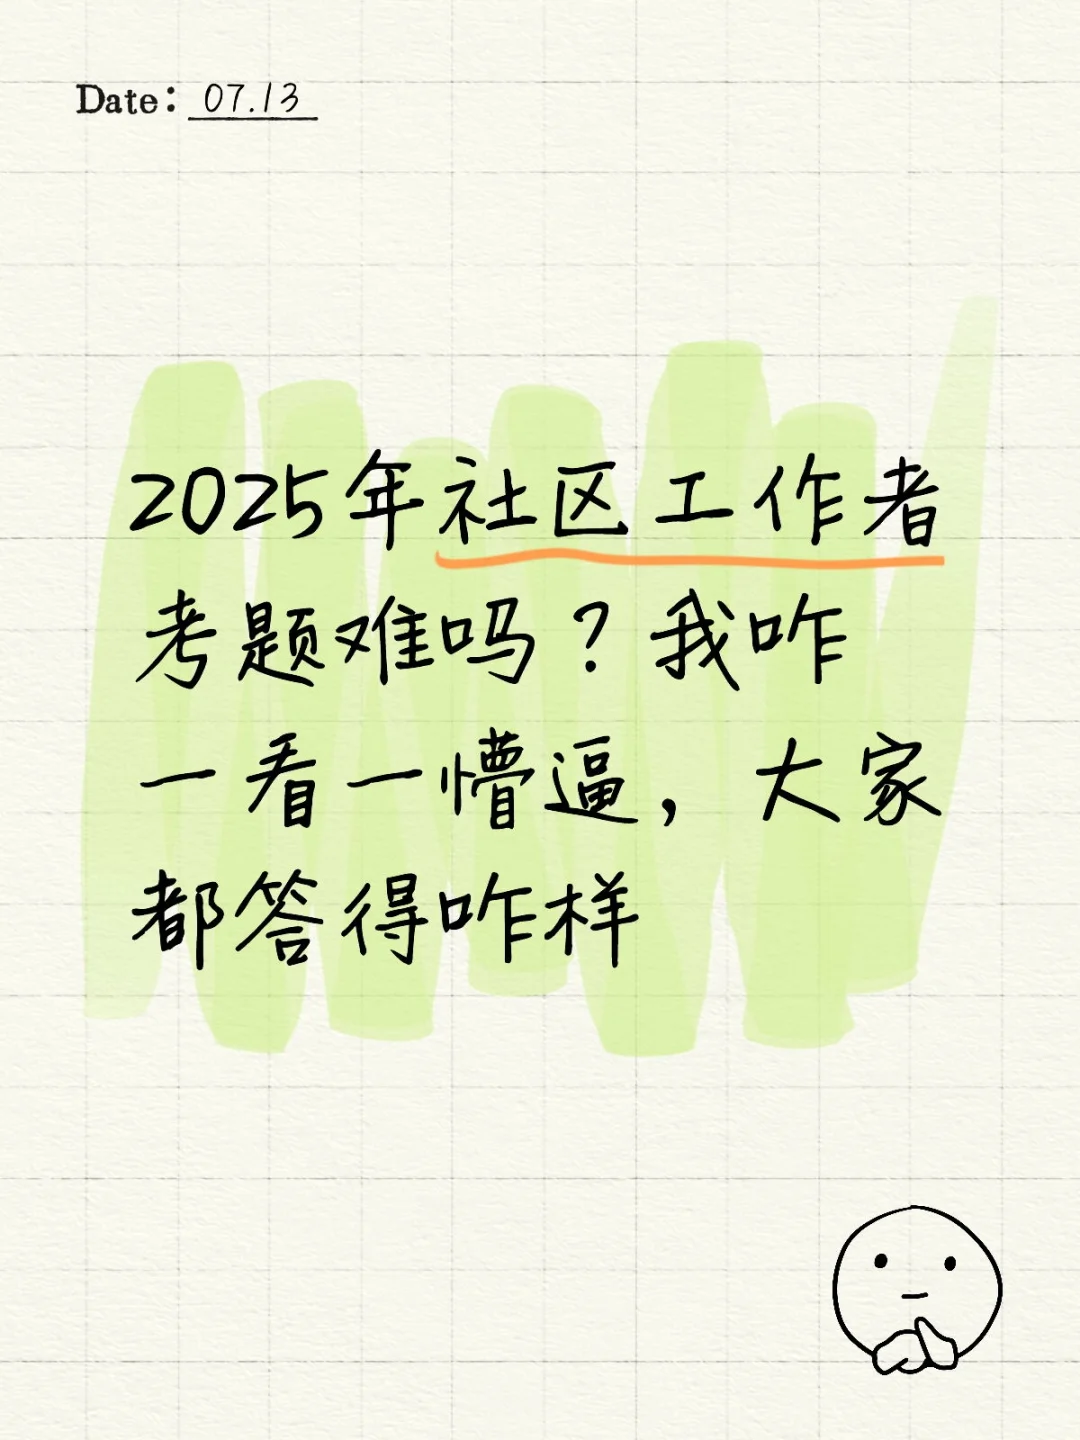 Date: 07.13
2025年社区工作者
考题难吗？我咋
一看一懵逼，大家
都答得咋样